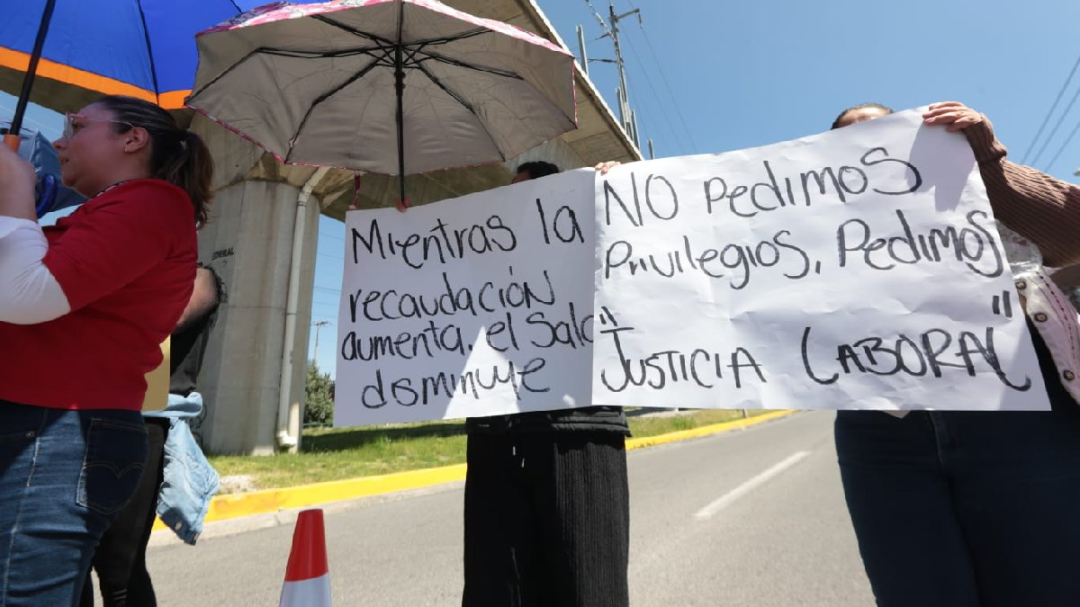 Mientras la
recaudación
aumenta. el Sala
disminuye
NO Pedimos
Privilegios, Pedimos
"Justicia Laboral"